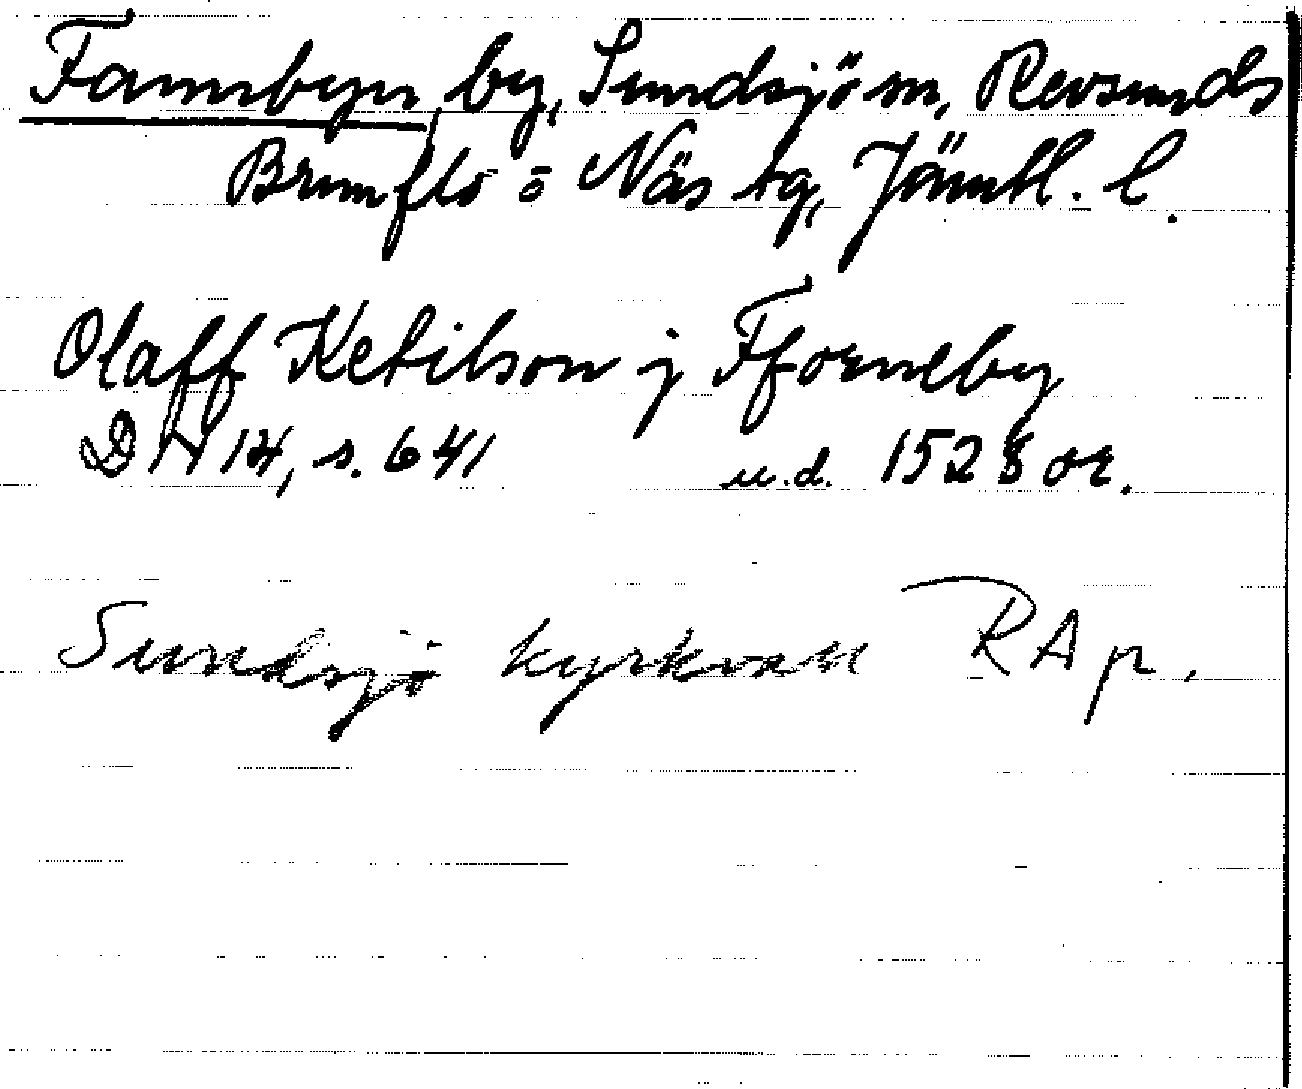 Fannbyn by, Sundsjö sn, Revsunds
Brunflo o Näs tg, Jämtl. l.
Olaff Ketilson j Fforneby
DN 14, s. 641 u.d. 1528 or.
Sundsjö kyrkvall RAp.